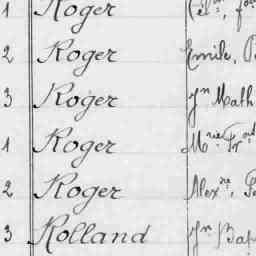 1 Roger
2 Roger Emile,
3 Roger Jn Math
1 Roger Mrie Frs
2 Roger Alexre,
3 Rolland Jn Bap